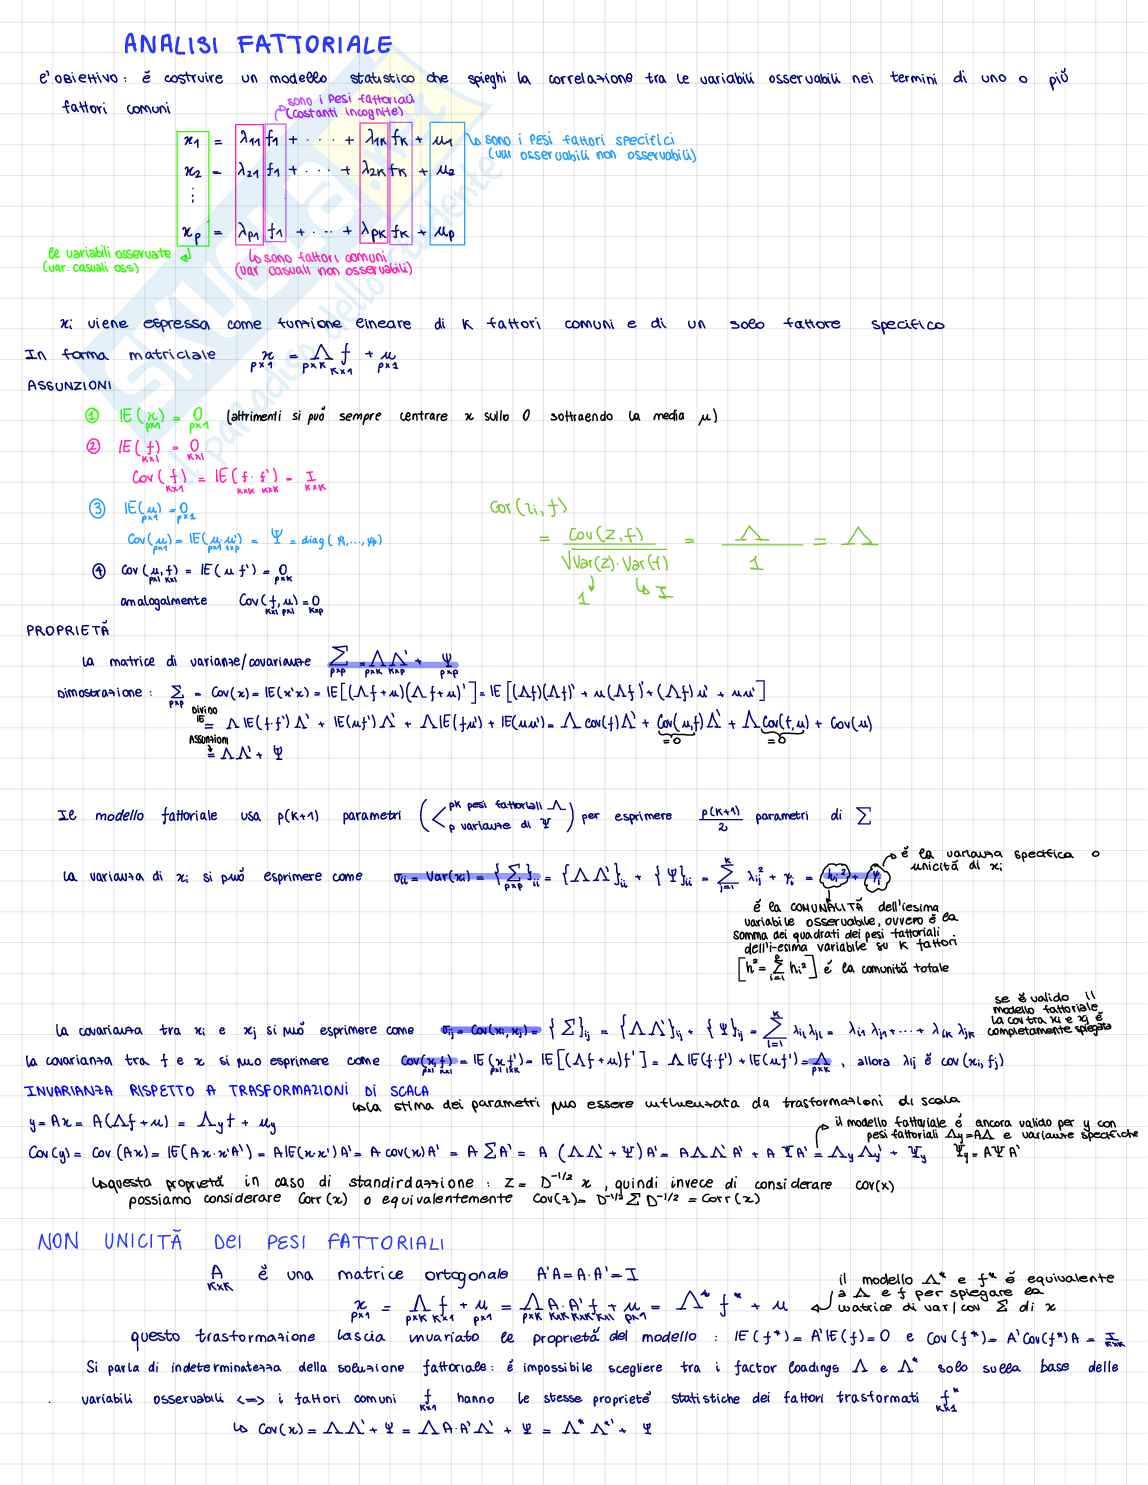 ANALISI FATTORIALE
e' OBIETTIVO: è costruire un modello statistico che spieghi la correlazione tra le variabili osservabili nei termini di uno o più
fattori comuni
sono i Pesi fattoriali
(costanti incognite)
x1 = λ11 f1 + · · · · + λ1K fK + u1
sono i Pesi fattori specifici
(var osservabili non osservabili)
x2 = λ21 f1 + · · · + λ2K fK + u2
⋮
xp = λp1 f1 + · · · + λpK fK + up
le variabili osservate
(var. casuali oss)
sono fattori comuni
(var casuali non osservabili)
xi viene espressa come funzione lineare di K fattori comuni e di un solo fattore specifico
In forma matriciale x = Λ f + u
p×1 p×K K×1 p×1
ASSUNZIONI
① IE(x) = 0 (altrimenti si può sempre centrare x sullo 0 sottraendo la media μ)
p×1 p×1
② IE(f) = 0
K×1 K×1
Cov(f) = IE(f · f') = I
K×1 K×K K×K K×K
③ IE(u) = 0
p×1 p×1
Cov(u) = IE(u·u') = Ψ = diag(
p×1 p×1 1×p
Cor(zi, f)
= Cov(z,f) / √Var(z)·Var(f) = Λ / 1 = Λ
1 I
④ Cov(u,f) = IE(u f') = 0
p×1 K×1 p×K
amalogalmente Cov(f,u) = 0
K×1 p×1 K×p
PROPRIETÀ
La matrice di varianze/covarianze Σ = ΛΛ' + Ψ
p×p p×K K×p p×p
Dimostrazione: Σ = Cov(x) = IE(x'x) = IE[(Λf+u)(Λf+u)'] = IE[(Λf)(Λf)' + u(Λf)' + (Λf)u' + uu']
p×p
Divido IE
= Λ IE(f·f')Λ' + IE(uf')Λ' + ΛIE(fu') + IE(uu') = Λ cov(f)Λ' + Cov(u,f)Λ' + ΛCov(f,u) + Cov(u)
=0 =0
Assunzioni
= ΛΛ' + Ψ
Il modello fattoriale usa p(K+1) parametri ( pK pesi fattoriali Λ
p varianze di Ψ ) per esprimere p(K+1)/2 parametri di Σ
è la varianza specifica o
unicità di xi
La varianza di xi si può esprimere come σii = Var(xi) = {Σ}ii = {ΛΛ'}ii + {Ψ}ii = Σ λij² + ψi = hi² + ψi
è la COMUNALITÀ dell'iesima
variabile osservabile, ovvero è la
somma dei quadrati dei pesi fattoriali
dell'i-esima variabile su K fattori
[h² = Σ hi²] è la comunità totale
se è valido il
modello fattoriale
la cov tra xi e xj è
completamente spiegata
La covarianza tra xi e xj si può esprimere come σij = Cov(xi,xj) = {Σ}ij = {ΛΛ'}ij + {Ψ}ij = Σ λil λjl = λi1 λj1 + ··· + λiK λjK
la covarianza tra f e x si può esprimere come Cov(x,f) = IE(x f') = IE[(Λf+u)f'] = ΛIE(f·f') + IE(uf') = Λ, allora λij è cov(xi, fj)
p×1 K×1 p×1 1×K p×K
INVARIANZA RISPETTO A TRASFORMAZIONI DI SCALA
la stima dei parametri può essere influenzata da trasformazioni di scala
y = Ax = A(Λf+u) = Λy f + uy
il modello fattoriale è ancora valido per y con
pesi fattoriali Λy=AΛ e varianze specifiche
Cov(y) = Cov(Ax) = IE(Ax·x'A') = AIE(xx')A' = A cov(x)A' = AΣA' = A(ΛΛ'+Ψ)A' = AΛΛ'A' + AΨA' = ΛyΛy' + Ψy Ψy = AΨA'
questa proprietà in caso di standirdazione: Z = D^-1/2 x, quindi invece di considerare cov(x)
possiamo considerare Corr(x) o equivalentemente Cov(z) = D^-1/2 Σ D^-1/2 = Corr(x)
NON UNICITÀ DEI PESI FATTORIALI
A è una matrice ortogonale A'A = A·A' = I
K×K
il modello Λ* e f* è equivalente
a Λ e f per spiegare la
matrice di var/cov Σ di x
x = Λ f + u = Λ A·A' f + u = Λ* f* + u
p×1 p×K K×1 p×1 p×K K×K K×K K×1 p×1
questo trasformazione lascia invariato le proprietà del modello: IE(f*) = A'IE(f) = 0 e Cov(f*) = A'Cov(f*)A = I
K×K
Si parla di indeterminatezza della soluzione fattoriale: è impossibile scegliere tra i factor loadings Λ e Λ* solo sulla base delle
variabili osservabili <=> i fattori comuni f hanno le stesse proprietà statistiche dei fattori trasformati f*
K×1 K×1
Cov(x) = ΛΛ' + Ψ = ΛA·A'Λ' + Ψ = Λ*Λ*' + Ψ